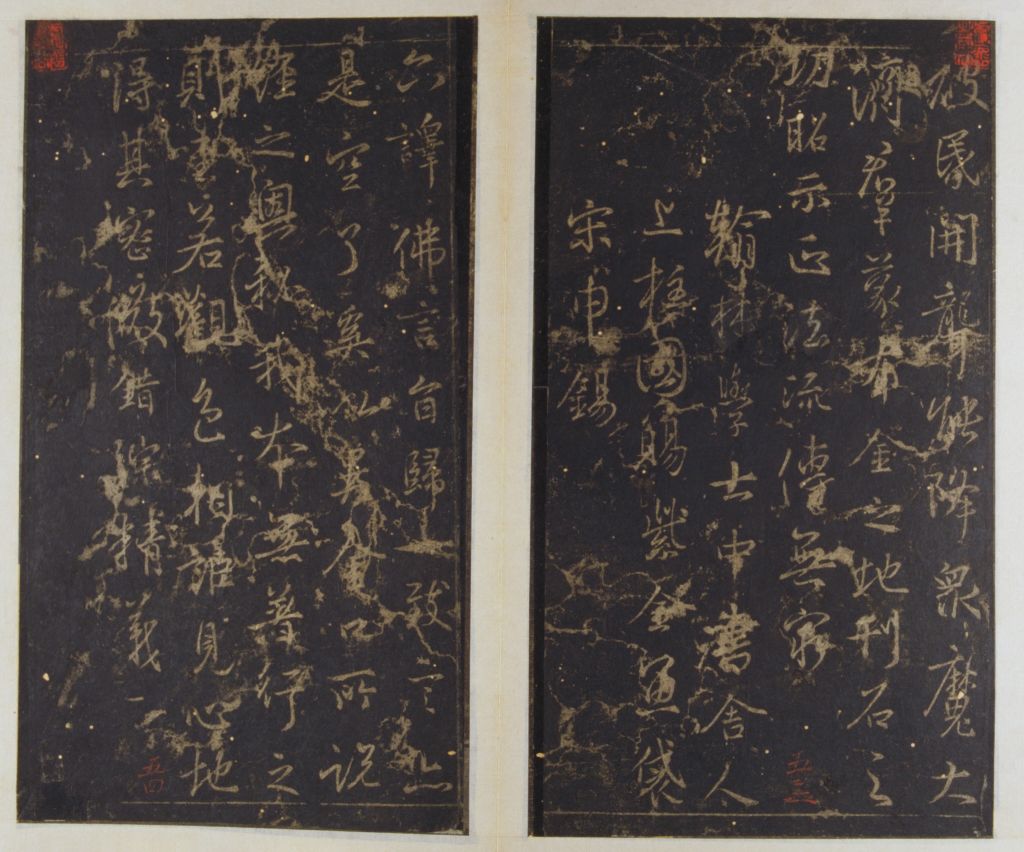 破昬開聾能降眾魔大
濟羣蒙布金之地刊石之
功昭示正法流傳無窮
翰林學士中書舍人
上柱國賜紫金魚袋
宋申錫
五三
六譯佛言旨歸致
是空了奚以異金口所說
經之奧我本無著行之
則若觀色相誰見心地
得其密微錯綜精義一
五四